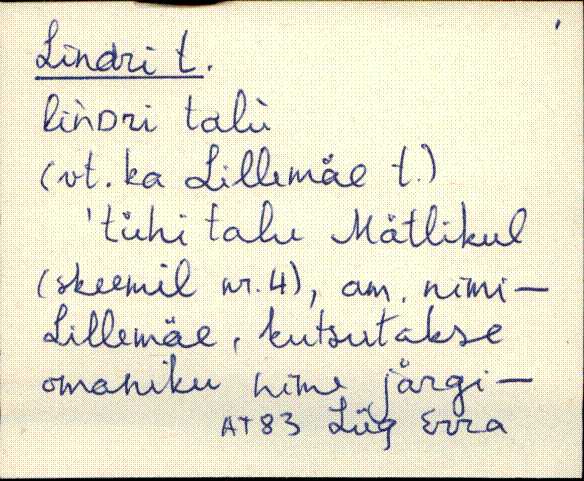 Lindri t.
lìnDri talù
(vt. ka Lillemäe t.)
'tühi talu Mätlikul
(skeemil nr. 4), am. nimi-
Lillemäe, kutsutakse
omaniku nime järgi-
AT83 Lüg Erra